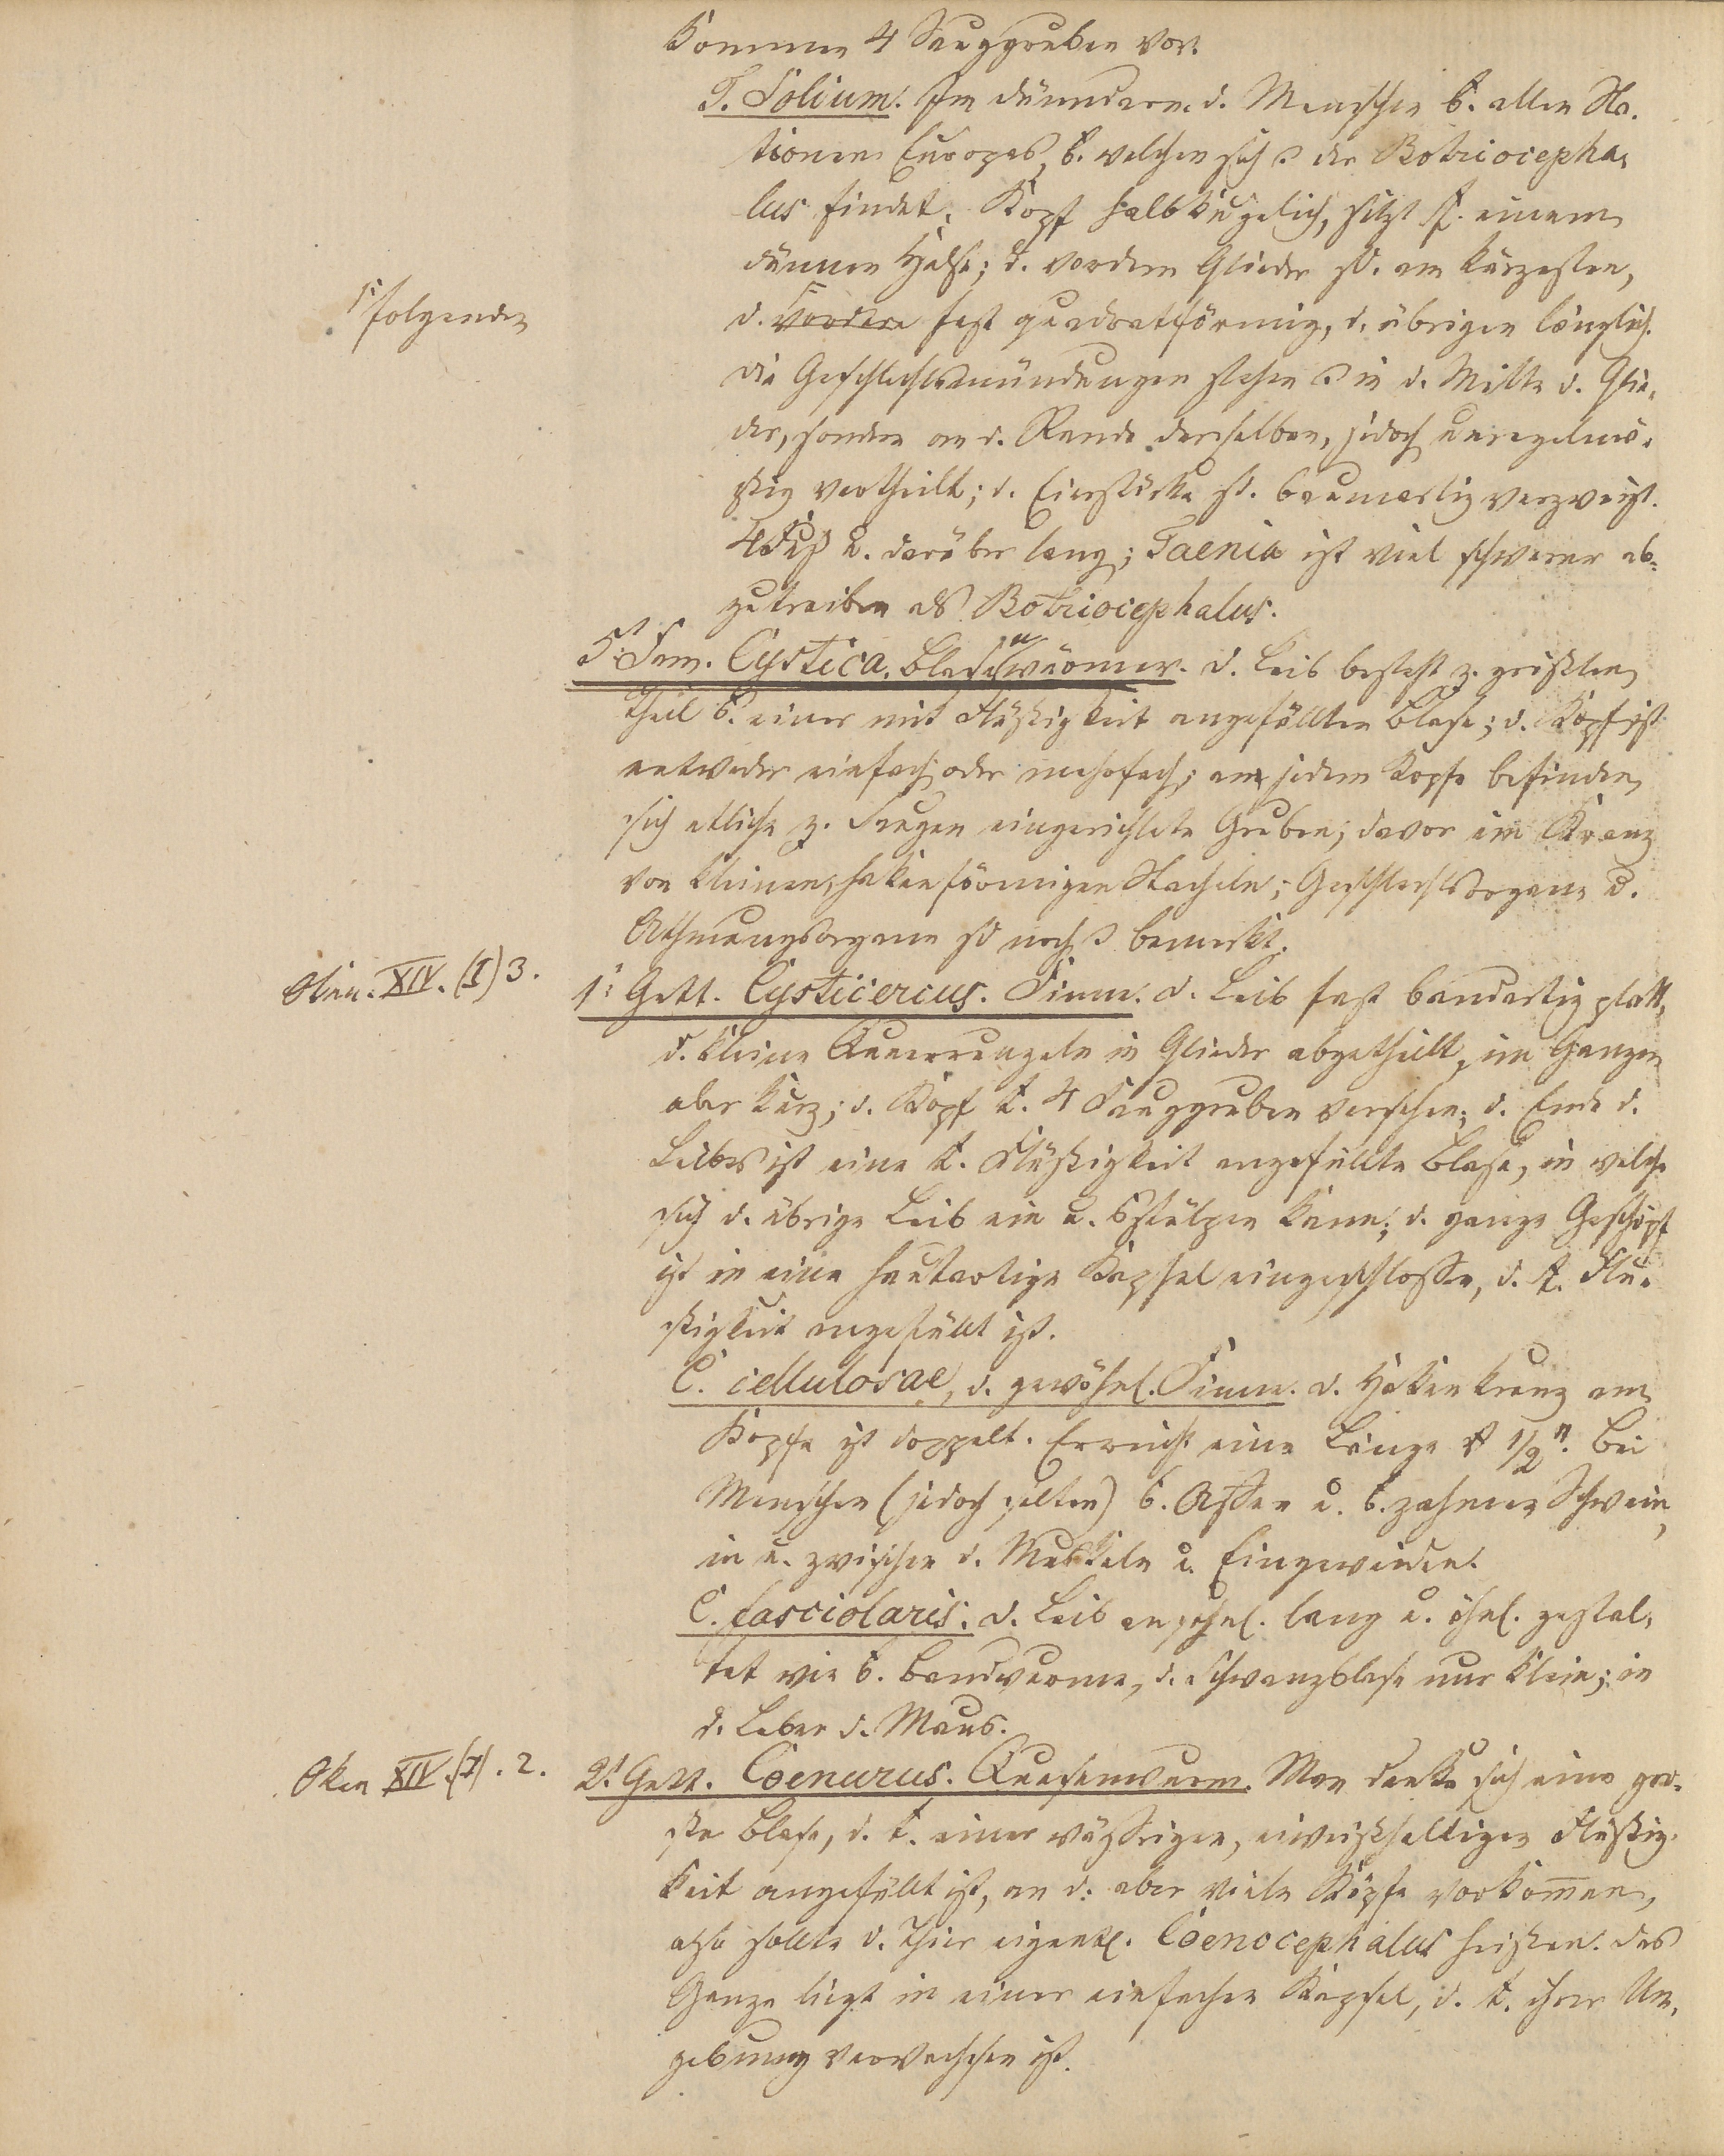 kommen 4 Sauggruben vor.
T. Solium. Im Dünndarm d. Menschen b. allen Na-
tionen Europas, b. welchen sich der Botriocepha-
lus findet. Kopf halbkugelich, sitzt einem
dünnen Halse; d. vordern Glieder sd. am kürzesten,
folgenden
d. vordere fast quadratförmig, d. übrigen länglich.
die Geschlechtsmündungen stehen in d. Mitte d. Glie-
der, sondern an d. Rande derselben, jedoch unregelmä-
ßig vertheilt; d. Eierstöcke sd. baumartig verzweigt.
4 Fuß u. darüber lang; Taenia ist viel schwerer ab-
zutreiben als Botriocephalus.
5t Fam. Cystica. Blasenwürmer. d. Leib besteht z. größten
Theil einer mit Flüßigkeit angefüllten Blase; d. Kopf ist
entweder einfach oder mehrfach; an jedem Kopfe befinden
sich etliche z. Saugen eingerichtete Gruben; davor ein Kranz
von kleinen, hakenförmigen Stacheln; Geschlechtsorgane u.
Athmungsorgane sd noch bemerkt.
Oken. XIV. (I) 3.
1t Gatt. Cysticercus. Finne. d. Leib fast bandartig platt,
d. kleine Querrunzeln in Glieder abgetheilt, im Ganzen
aber kurz; d. Kopf t. 4 Sauggruben versehen; d. Ende d.
Leibes ist eine t. Flüßigkeit angefüllte Blase, in welche
sich d. übrige Leib ein u. stülpen kann; d. ganze Geschöpf
ist in eine hautartige Kapsel eingeschlossen, d. t. Flü-
ßigkeit angefüllt ist.
C. cellulosae, d. gewöhnl. Finne. d. Hakenkranz am
Kopfe ist doppelt. Erreicht eine Länge 1/2". Bei
Menschen (jedoch selten) b. Affen u. b. zahmen Schwein,
in u. zwischen d. Muskeln u. Eingeweiden.
C. fasciolaris. d. Leib ansehnl. lang u. ähnl. gestal-
tet wie b. Bandwurme, d. Schwanzblase nur klein; in
d. Leber d. Maus.
Oken XIV. (I). 2.
2t Gatt. Coenurus. Queesenwurm. Man denke sich eine gro-
ße Blase, d. t. einer wäßrigen, eiweißhaltigen Flüßig-
keit angefüllt ist, an d. aber viele Köpfe vorkommen,
also sollte d. Thier eigentl. Coenocephalus heißen. das
Ganze liegt in einer einfachen Kapsel, d. t. ihrer Um-
gebung verwachsen ist.